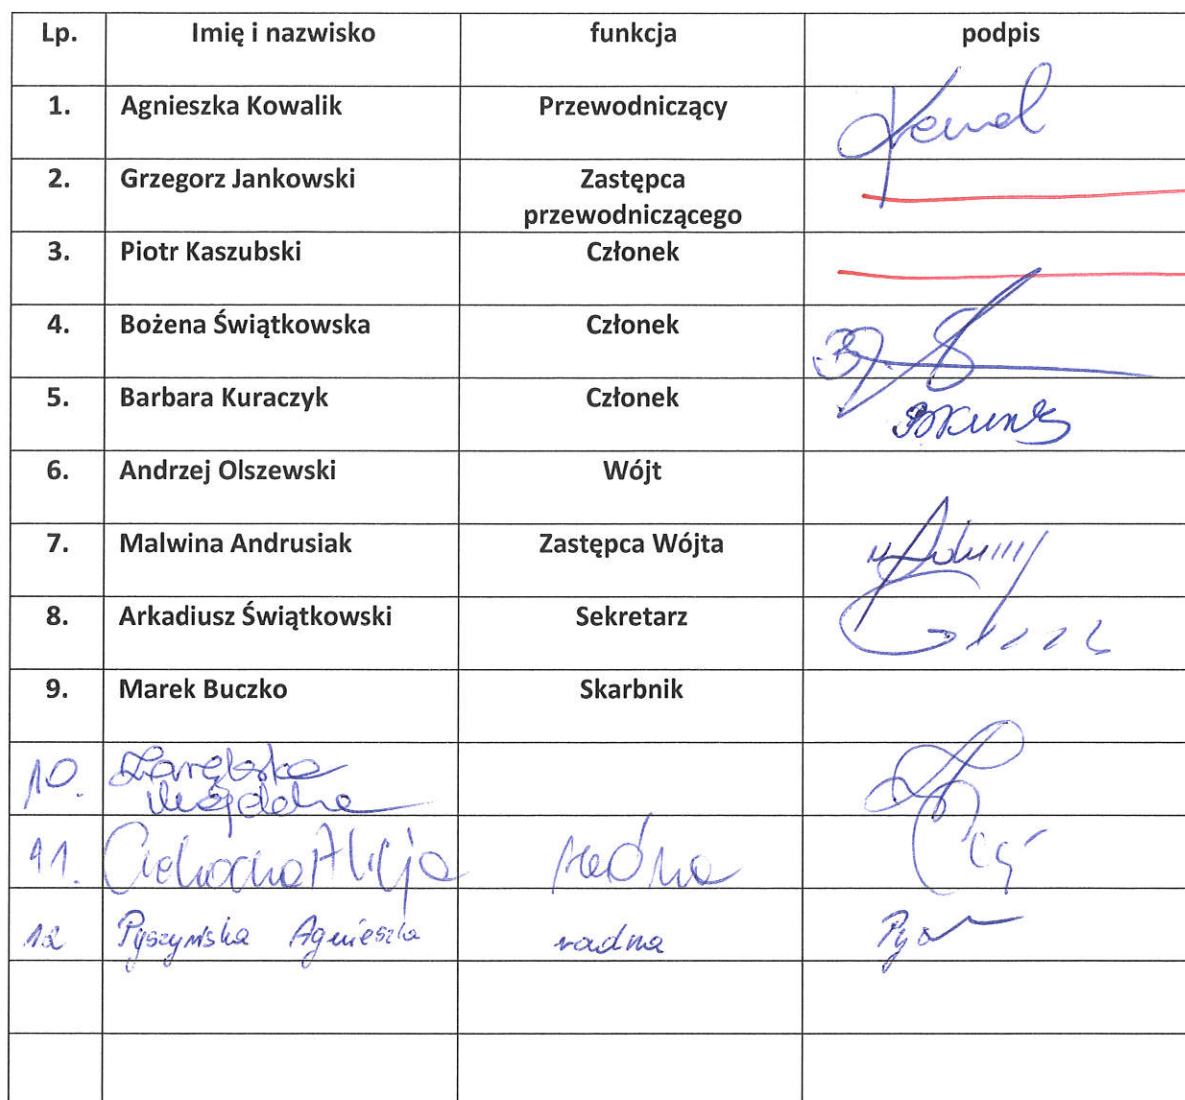 Lp. Imię i nazwisko funkcja podpis
1. Agnieszka Kowalik Przewodniczący
2. Grzegorz Jankowski Zastępca
przewodniczącego
3. Piotr Kaszubski Członek
4. Bożena Świątkowska Członek
5. Barbara Kuraczyk Członek
6. Andrzej Olszewski Wójt
7. Malwina Andrusiak Zastępca Wójta
8. Arkadiusz Świątkowski Sekretarz
9. Marek Buczko Skarbnik
10. Zarębska
11. Alicja radna
12 Pyszyńska Agnieszka radna